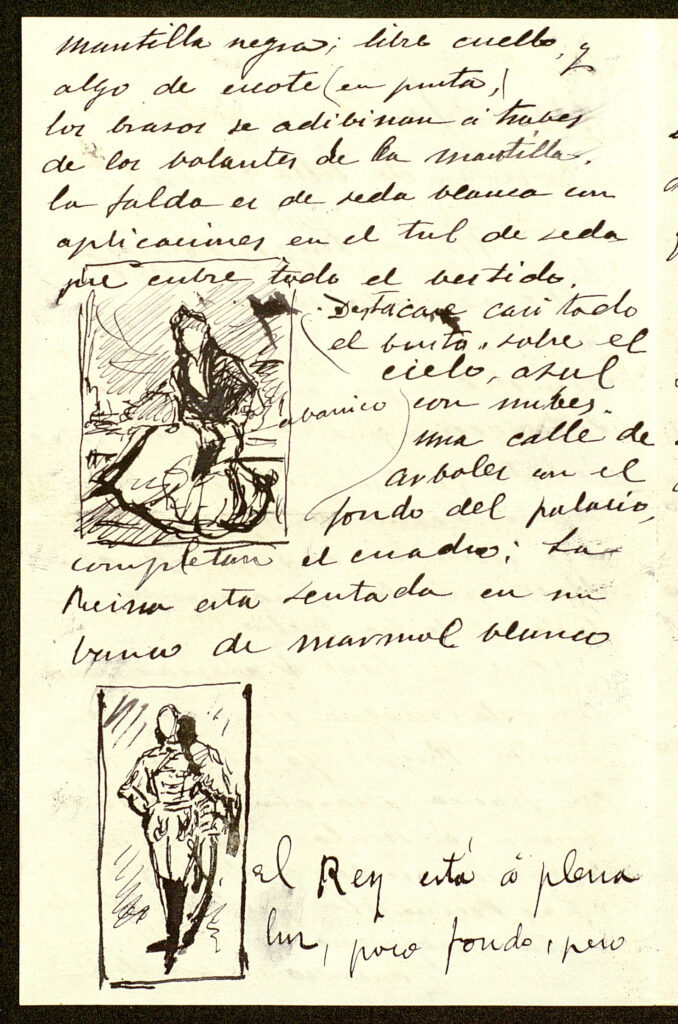 mantilla negra; libre cuello, y
algo de escote (en punta,)
los brasos se adibinan á traves
de los volantes de la mantilla.
la falda es de seda blanca con
aplicaciones en el tul de seda
que cubre todo el vestido.
Destácase casi todo
el busto, sobre el
cielo, asul
abanico
con nubes.
una calle de
arboles con el
fondo del palacio,
completan el cuadro; La
Reina esta sentada en un
banco de marmol blanco
El Rey está á plena
luz, poco fondo, pero